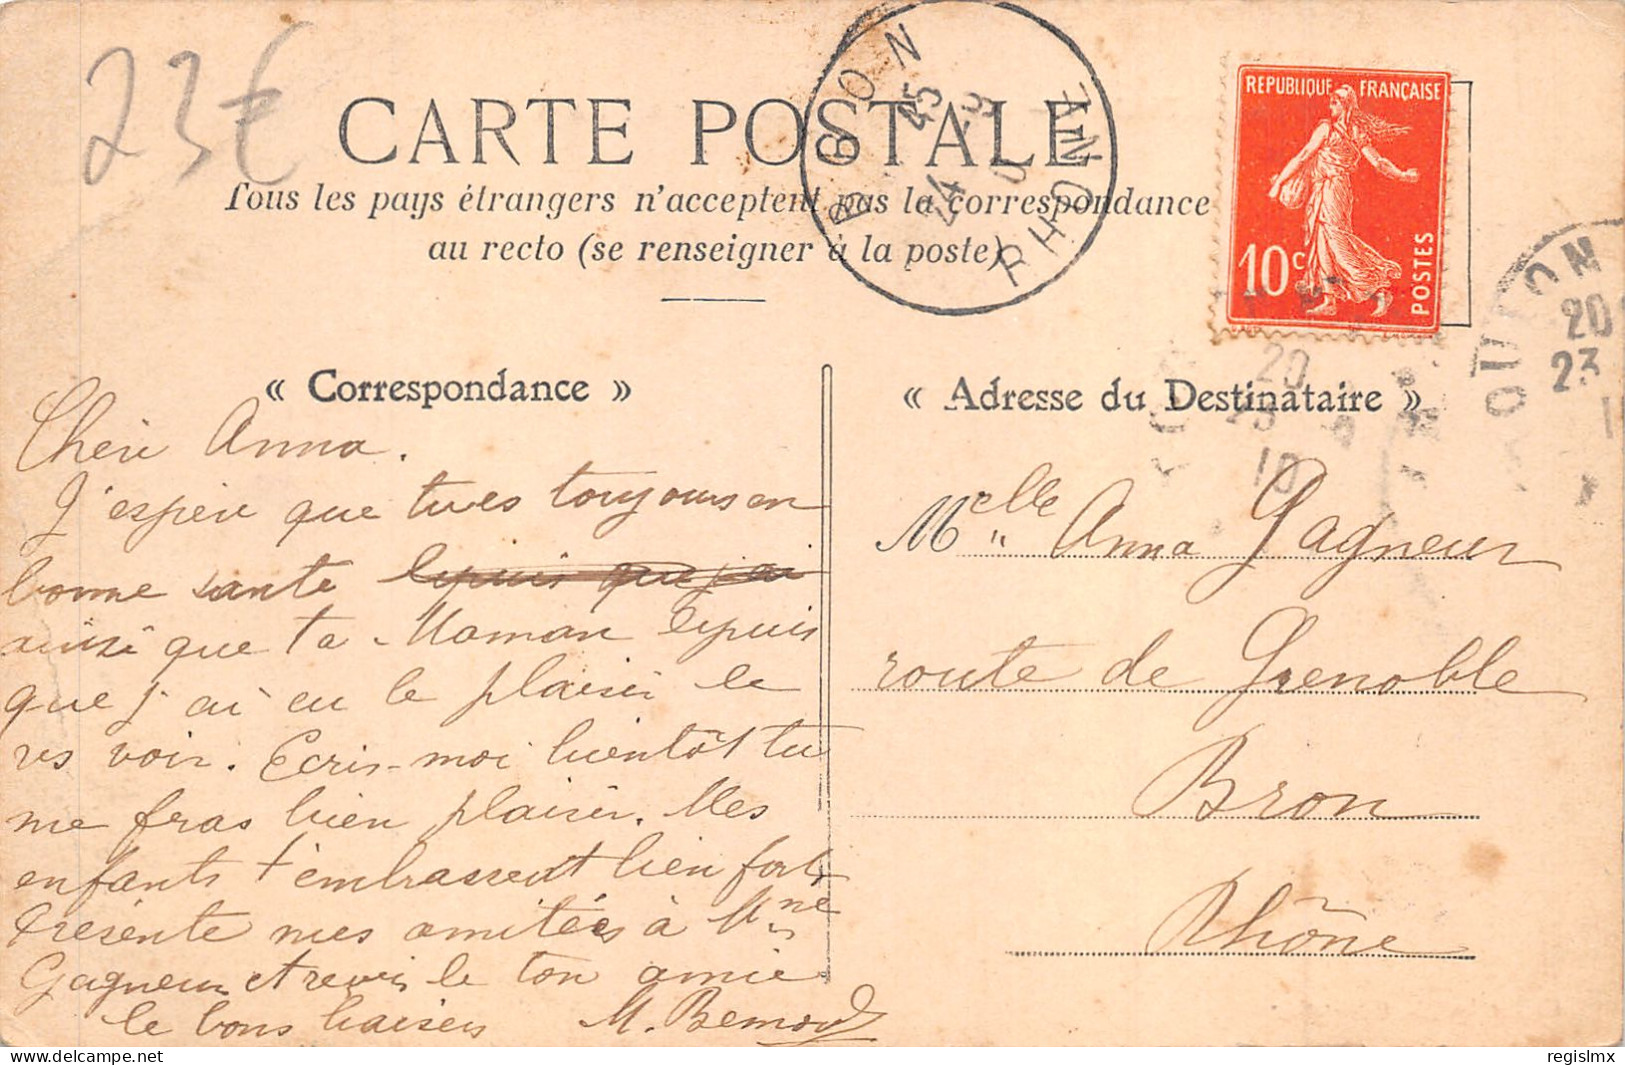 23€
CARTE POSTALE
Tous les pays étrangers n'acceptent pas la correspondance
au recto (se renseigner à la poste)
BRON
45
24 9
RHONE
REPUBLIQUE FRANÇAISE
10c
POSTES
20
23
10
TOULON
20
23
« Correspondance »
Chère Anna.
J'espère que tu es toujours en
bonne sante depuis que j'ai
ainsi que ta Maman depuis
que j'ai eu le plaisir de
vs voir. Ecris-moi bientôt tu
me fras bien plaisir. Mes
enfants t'embrassent bien fort
Présente mes amitiées à Mme
Gagneur et reçois de ton amie
de bons baisers M.
« Adresse du Destinataire »
Melle Anna Gagneur
route de Grenoble
Bron
Rhône
delcampe.net
regislmx